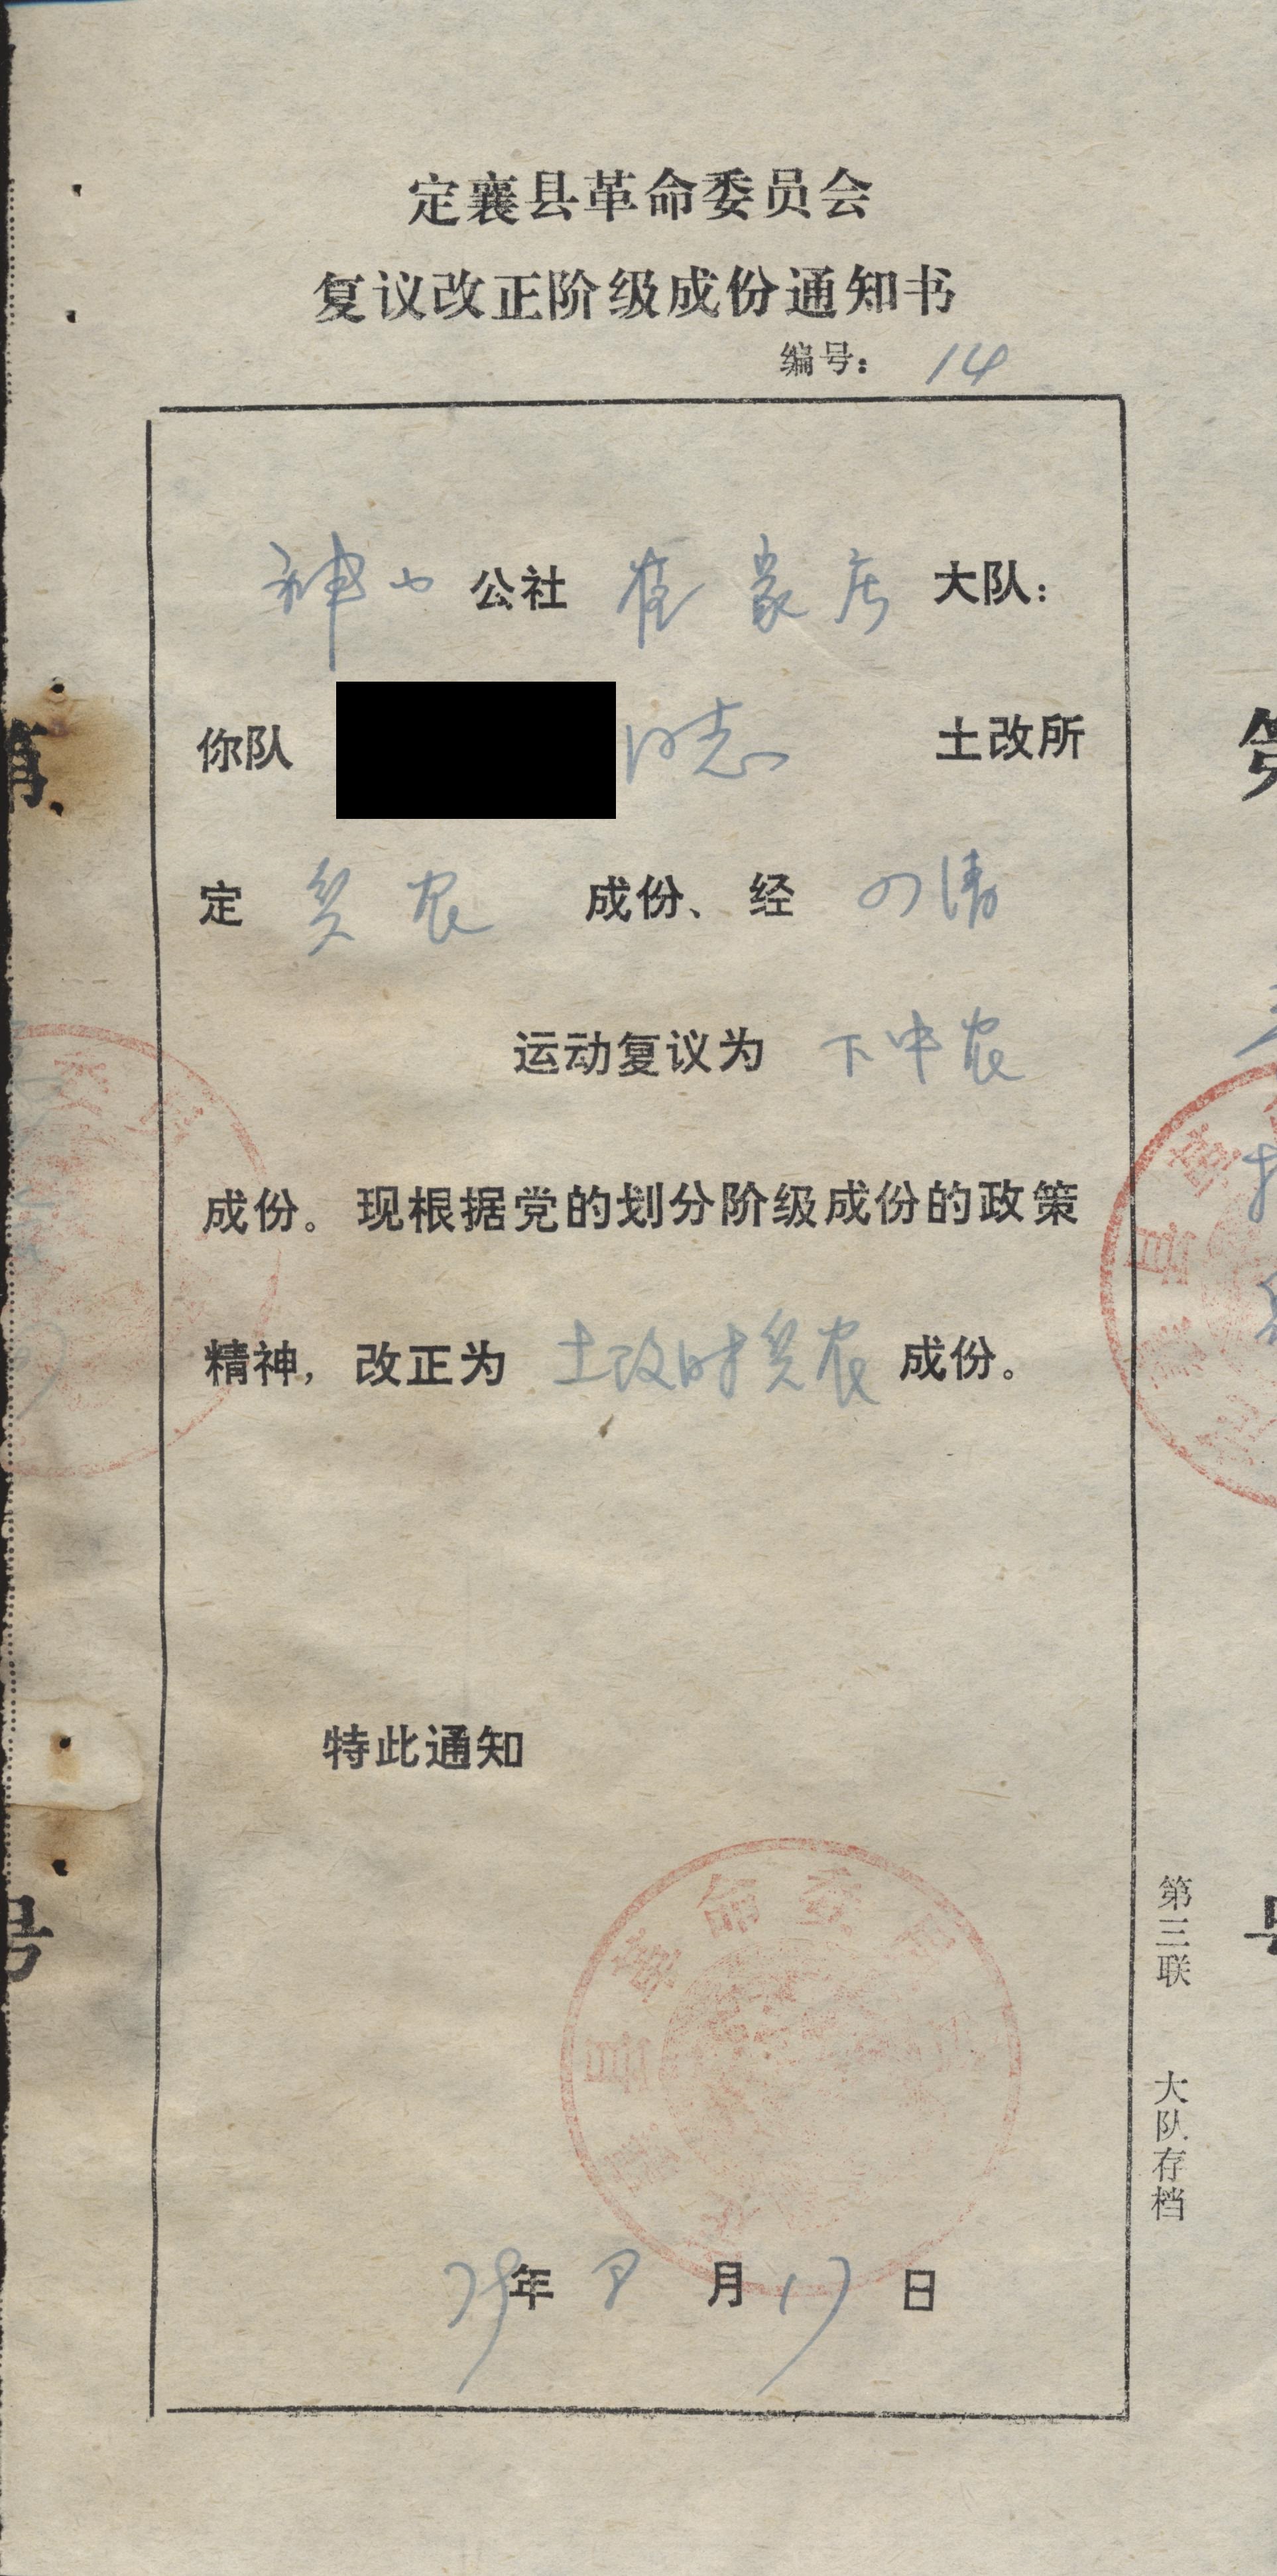 定襄县革命委员会
复议改正阶级成份通知书
编号: 14
神山公社 崔家庄 大队:
你队 同志 土改所
定 贫农 成份、经 四清
运动复议为 下中农
成份。现根据党的划分阶级成份的政策
精神, 改正为 土改时贫农 成份。
特此通知
79年 8月17日
第三联 大队存档
第
号
革命委员